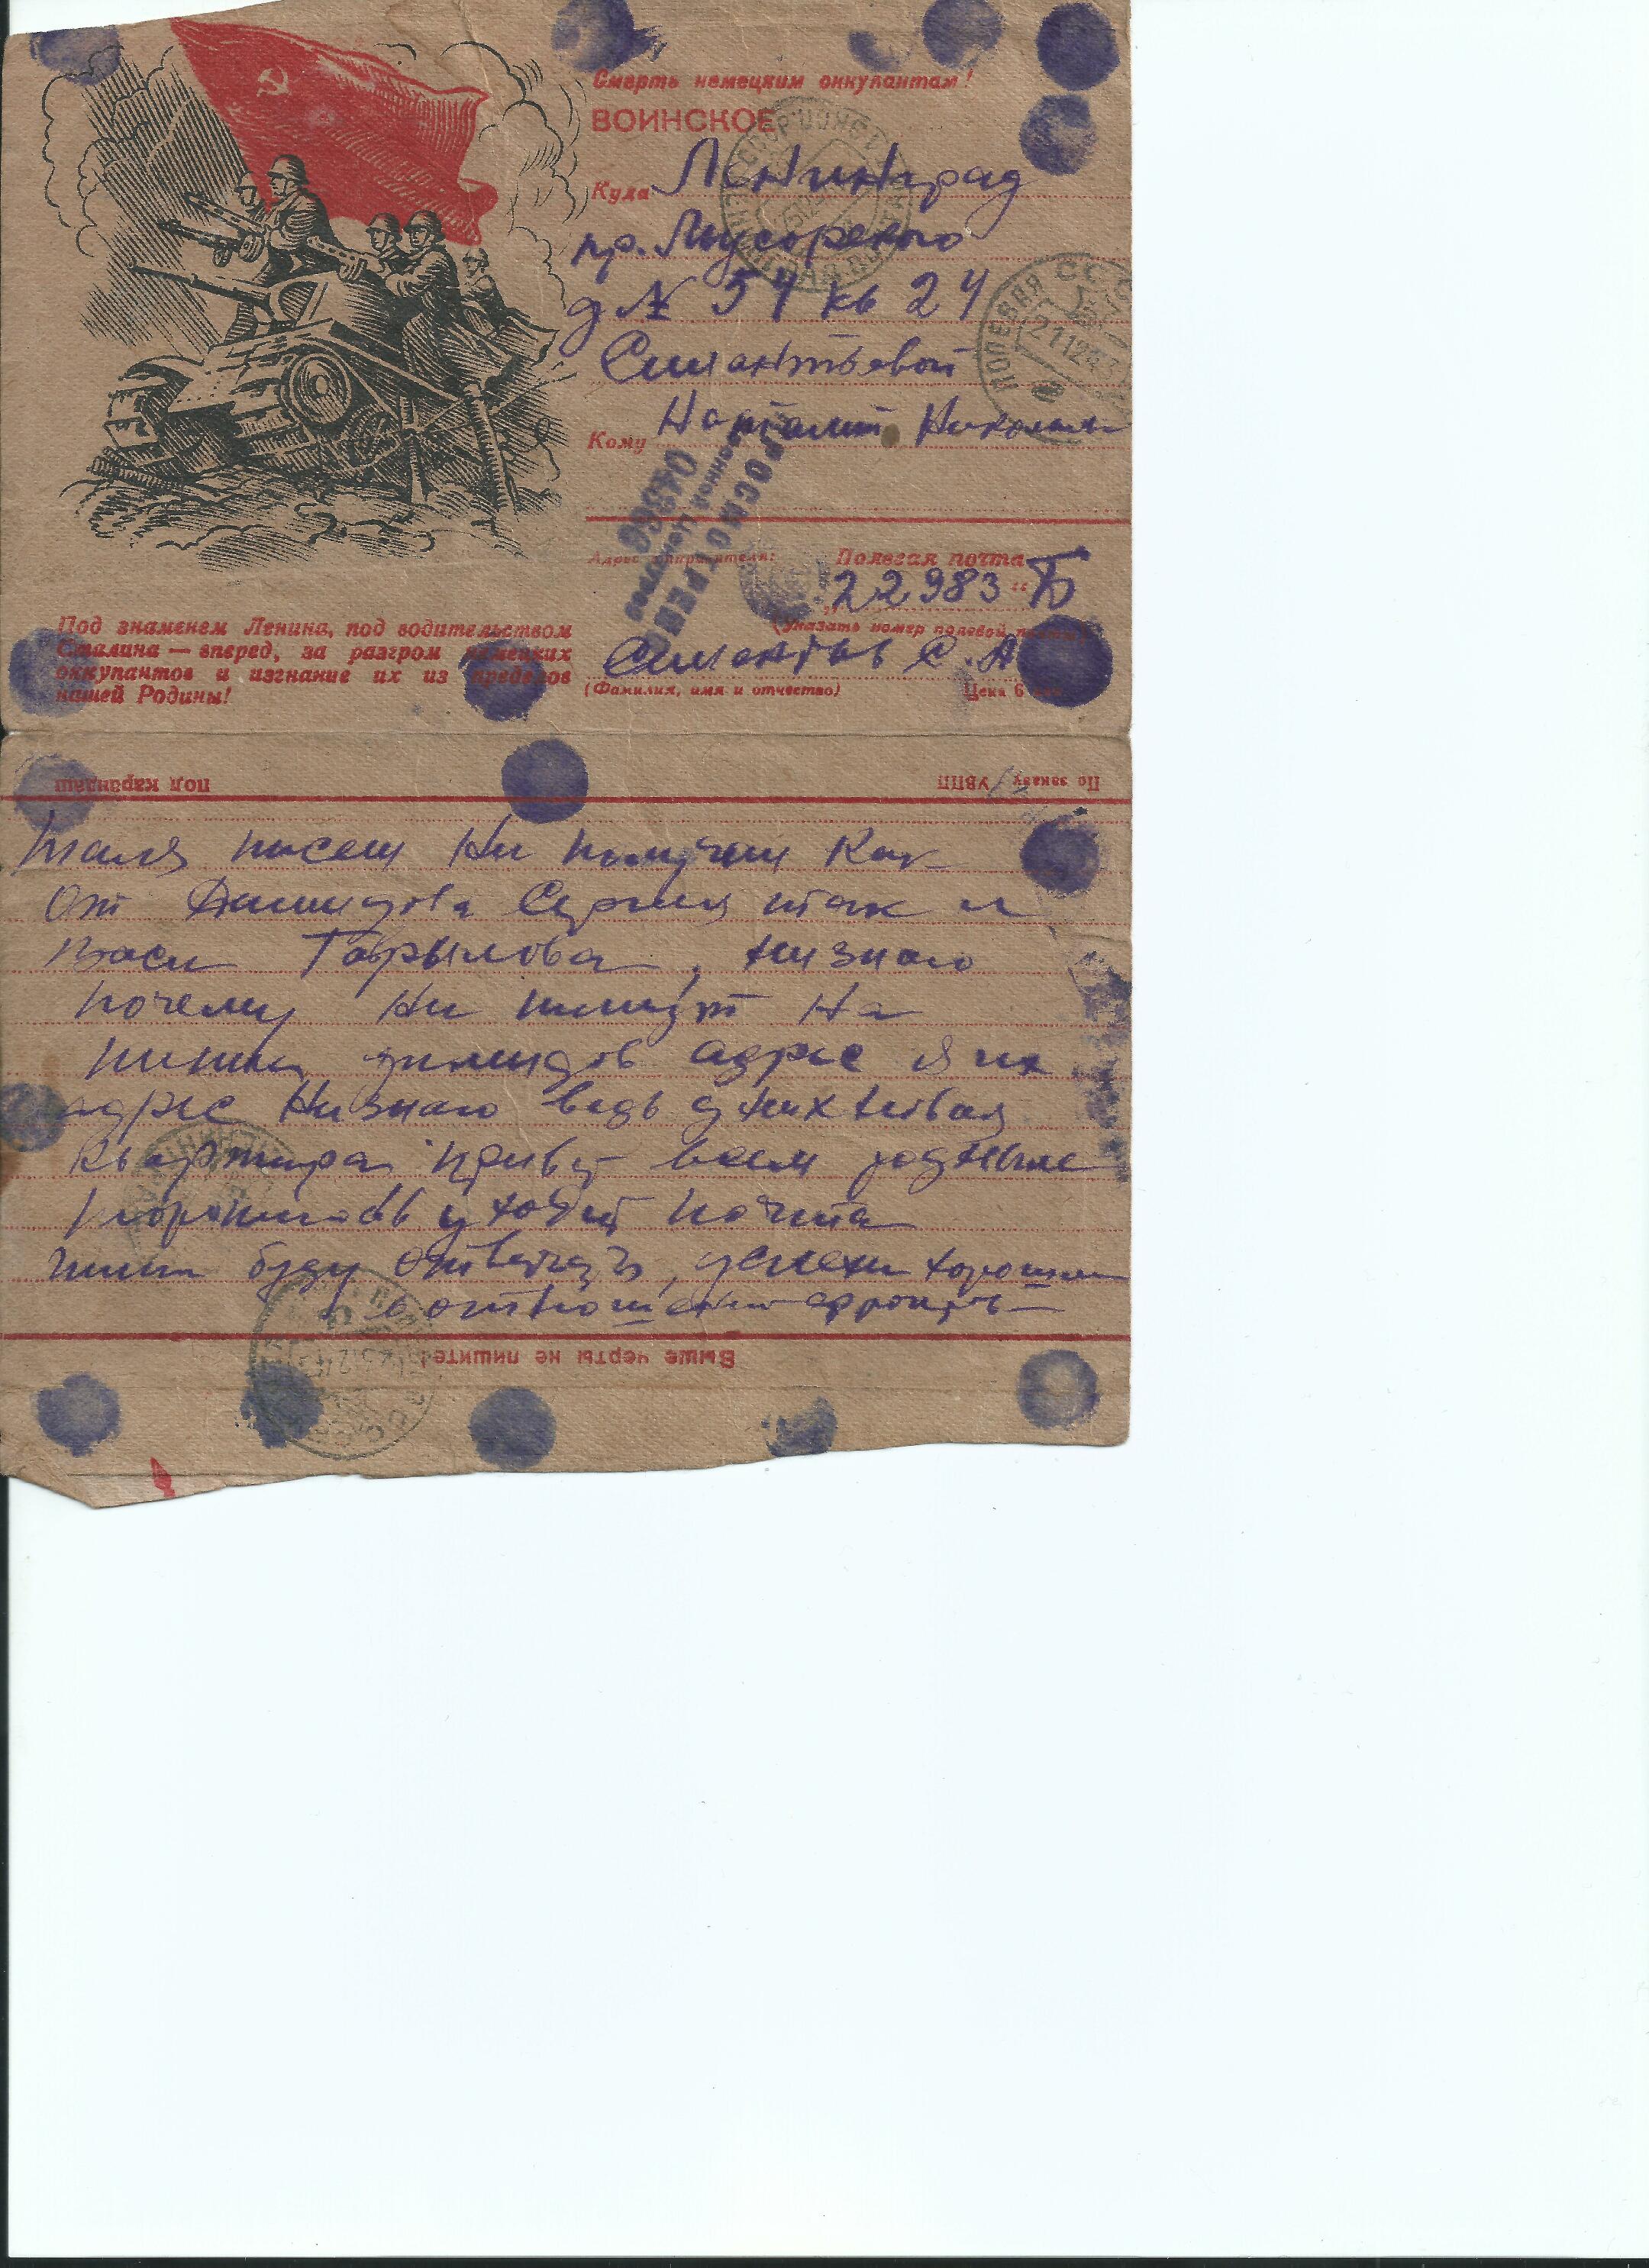 Смерть немецким оккупантам!
ВОИНСКОЕ
Куда Ленинград
пр. Мусоргского
д № 54 кв 24
Силантьевой
Кому Наталии Николаевн
ПРОСМОТРЕНО
Военной Цензурой
Адрес отправителя: Полевая почта
22983 "Б"
(Указать номер полевой почты)
Силантьев С. А
(Фамилия, имя и отчество) Цена 6 коп.
Под знаменем Ленина, под водительством
Сталина — вперед, за разгром немецких
оккупантов и изгнание их из пределов
нашей Родины!
ПОЛЕВАЯ
21 12 43
По заказу УВПП
под карандаш
Таля писем Ни получаю Как
От Сергея так и
Васи Гаврылова, низнаю
почему Ни пишут На
адрес я их
адрес Низнаю ведь у них новая
квартира привет всем родным
тороплюсь уходит почта
пиши буду отвечать, успехи хорошии
в отношении фронта
Выше черты не пишите!